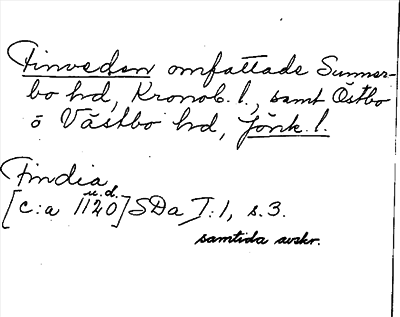 Finveden omfattade Sunner-
bo hd, Kronob. l., samt Östbo
o Västbo hd, Jönk. l.
Findia
u.d.
[c:a 1120] SDa I:1, s. 3.
samtida avskr.